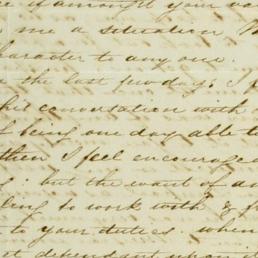 if amongst your va
me a situation. B
character to any one.
the last few days; I f
his conversation with
of being one day able t
then I feel encourage
but the want of an
ling to work with &
to your duties. when
not dependant upon